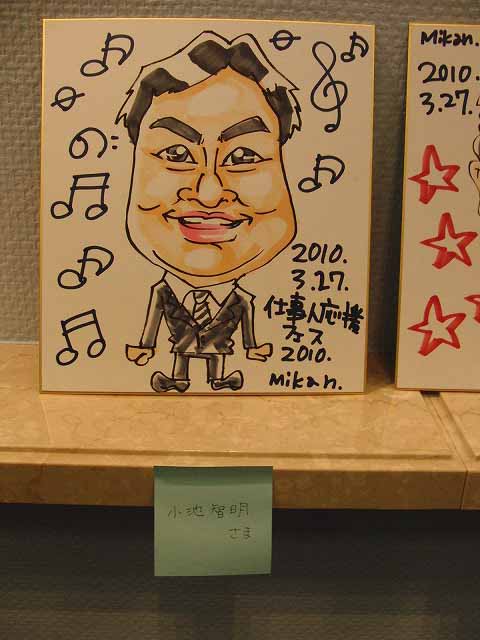 2010.
3.27.
仕事人応援
フェス
2010.
Mikan.
Mikan.
2010.
3.27.
小池智明
さま